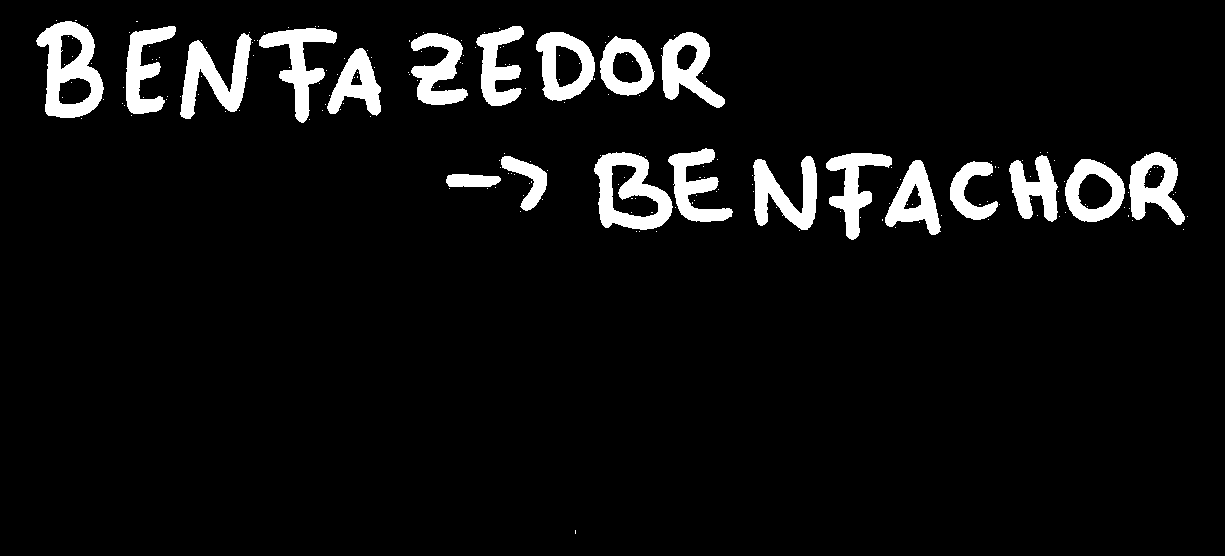 BENFAZEDOR
-> BENFACHOR